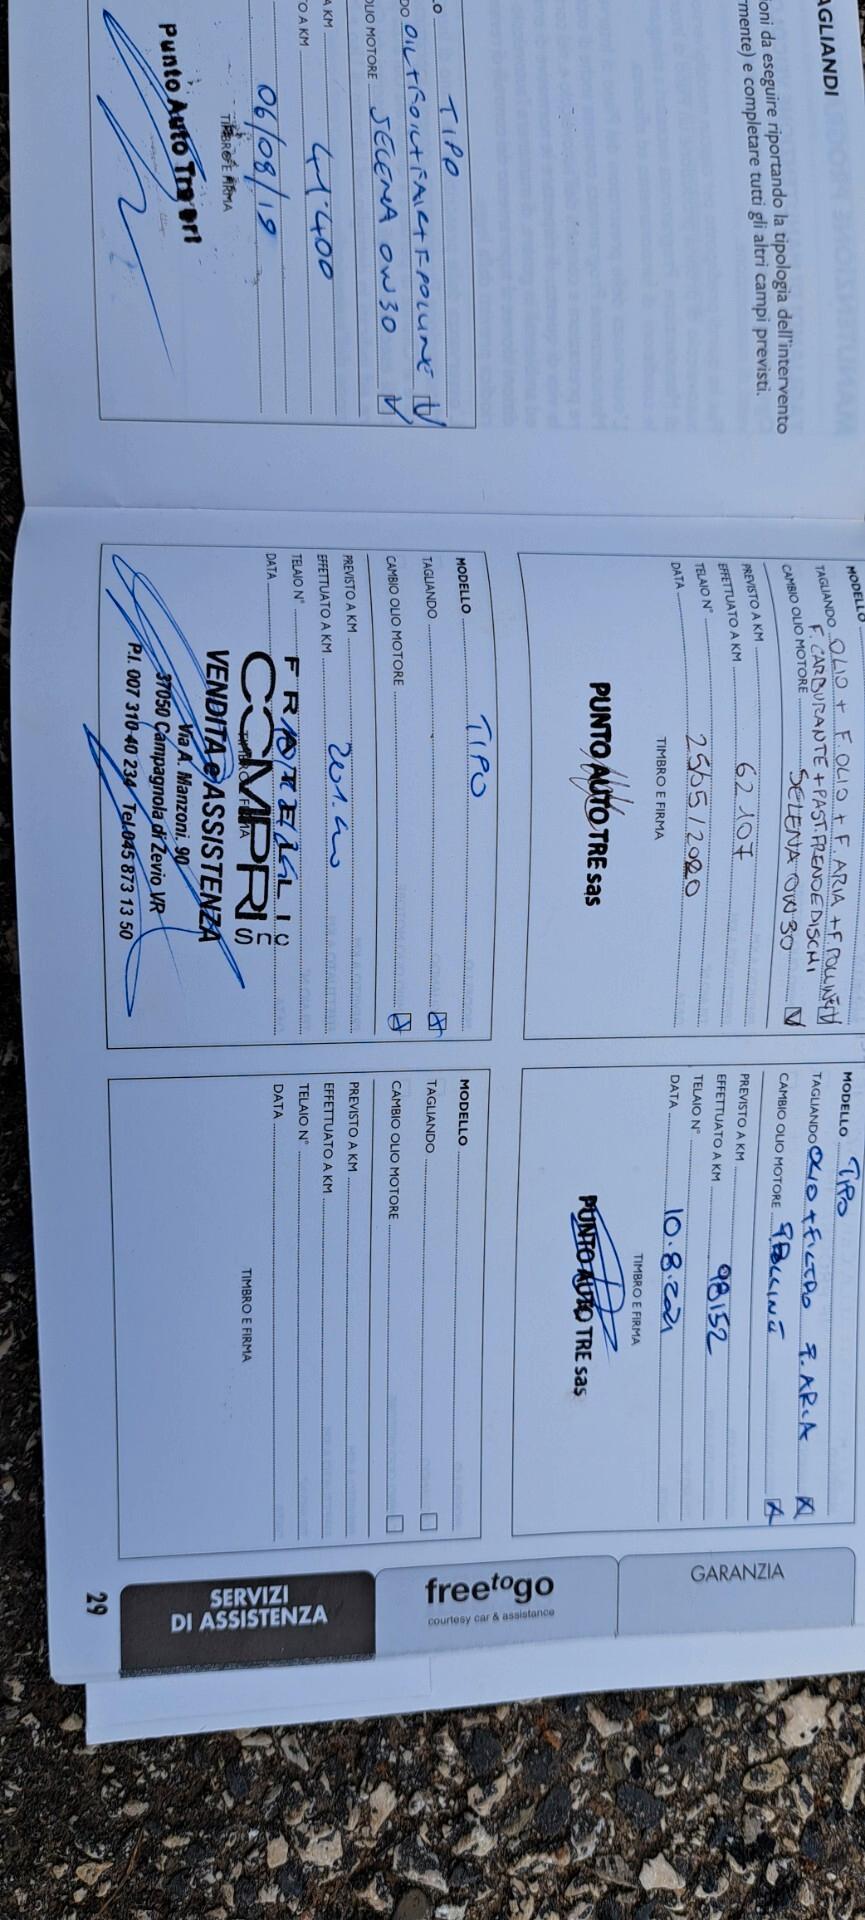 AGLIANDI
ioni da eseguire riportando la tipologia dell'intervento
mente) e completare tutti gli altri campi previsti.
TIPO
OIL+FOIL+FAIR+FPOLLINE
OLIO MOTORE SELENA 0W30
A KM
TO A KM 41.400
06/08/19
TIMBRO E FIRMA
Punto Auto Tre srl
MODELLO
TAGLIANDO OLIO + F OLIO + F. ARIA + F. POLLINE
F. CARBURANTE + PAST. FRENO E DISCHI
CAMBIO OLIO MOTORE SELENA 0W30
PREVISTO A KM
EFFETTUATO A KM 62107
TELAIO N°
DATA 25/05/2020
TIMBRO E FIRMA
PUNTO AUTO TRE sas
MODELLO TIPO
TAGLIANDO OLIO + FILTRO F. ARIA
CAMBIO OLIO MOTORE F. POLLINE
PREVISTO A KM
EFFETTUATO A KM 98152
TELAIO N°
DATA 10.8.2021
TIMBRO E FIRMA
PUNTO AUTO TRE sas
MODELLO TIPO
TAGLIANDO
CAMBIO OLIO MOTORE
PREVISTO A KM
EFFETTUATO A KM
TELAIO N°
DATA
FRATELLI
COMPRI snc
TIMBRO E FIRMA
VENDITA e ASSISTENZA
Via A. Manzoni, 90
37050 Campagnola di Zevio VR
P.I. 007 310 40 234 Tel.045 873 13 50
MODELLO
TAGLIANDO
CAMBIO OLIO MOTORE
PREVISTO A KM
EFFETTUATO A KM
TELAIO N°
DATA
TIMBRO E FIRMA
GARANZIA
freetogo
courtesy car & assistance
SERVIZI
DI ASSISTENZA
29